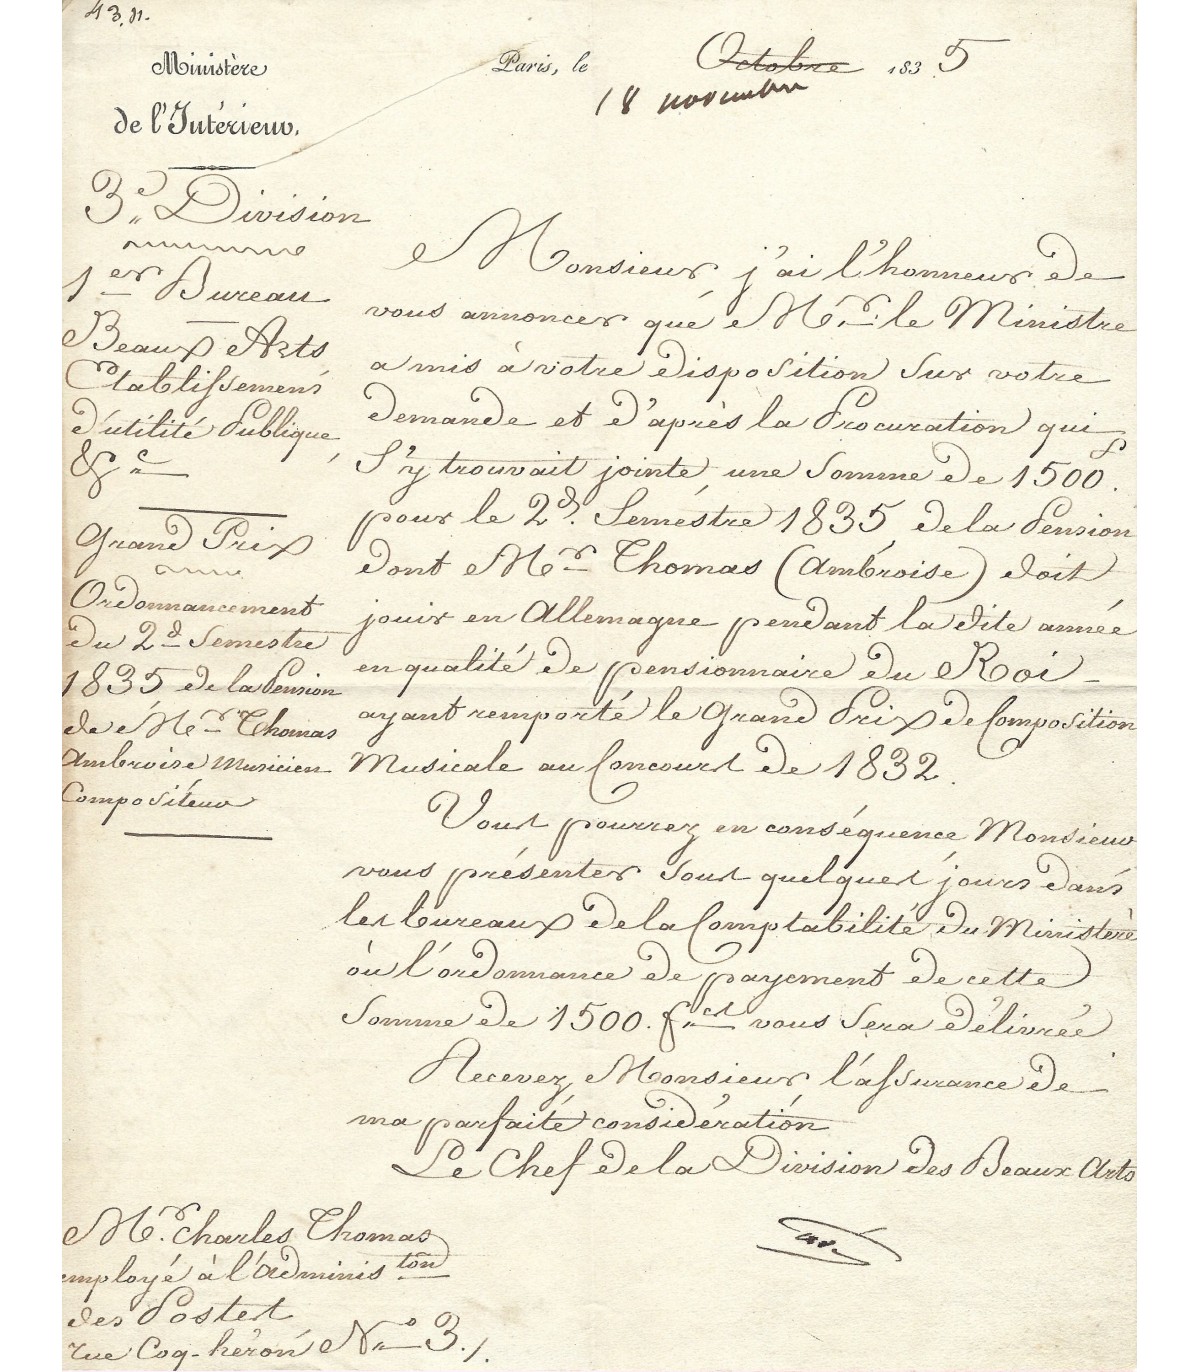 43.
Ministère
de l'Intérieur.
3e Division
1er Bureau
Beaux Arts
Etablissemens
d'utilité Publique,
&c
Grand Prix
Ordonnancement
du 2d Semestre
1835 de la Pension
de Mr Thomas
Ambroise Musicien
Compositeur
Paris, le Octobre 1835
18 novembre
Monsieur j'ai l'honneur de
vous annoncer que Mr. le Ministre
a mis à votre disposition sur votre
demande et d'après la Procuration qui
s'y trouvait jointe, une somme de 1500f.
pour le 2d. Semestre 1835 de la Pension
dont Mr Thomas (Ambroise) doit
jouir en Allemagne pendant la dite année
en qualité de pensionnaire du Roi
ayant remporté le Grand Prix de Composition
Musicale au Concours de 1832.
Vous pourrez en conséquence Monsieur
vous présenter sous quelques jours dans
les bureaux de la Comptabilité du Ministère
où l'ordonnance de payement de cette
Somme de 1500. frcs vous sera délivrée
Recevez Monsieur l'assurance de
ma parfaite considération
Le Chef de la Division des Beaux Arts
Mr. Charles Thomas
employé à l'Administon
des Postes
rue Coq-héron No 3.